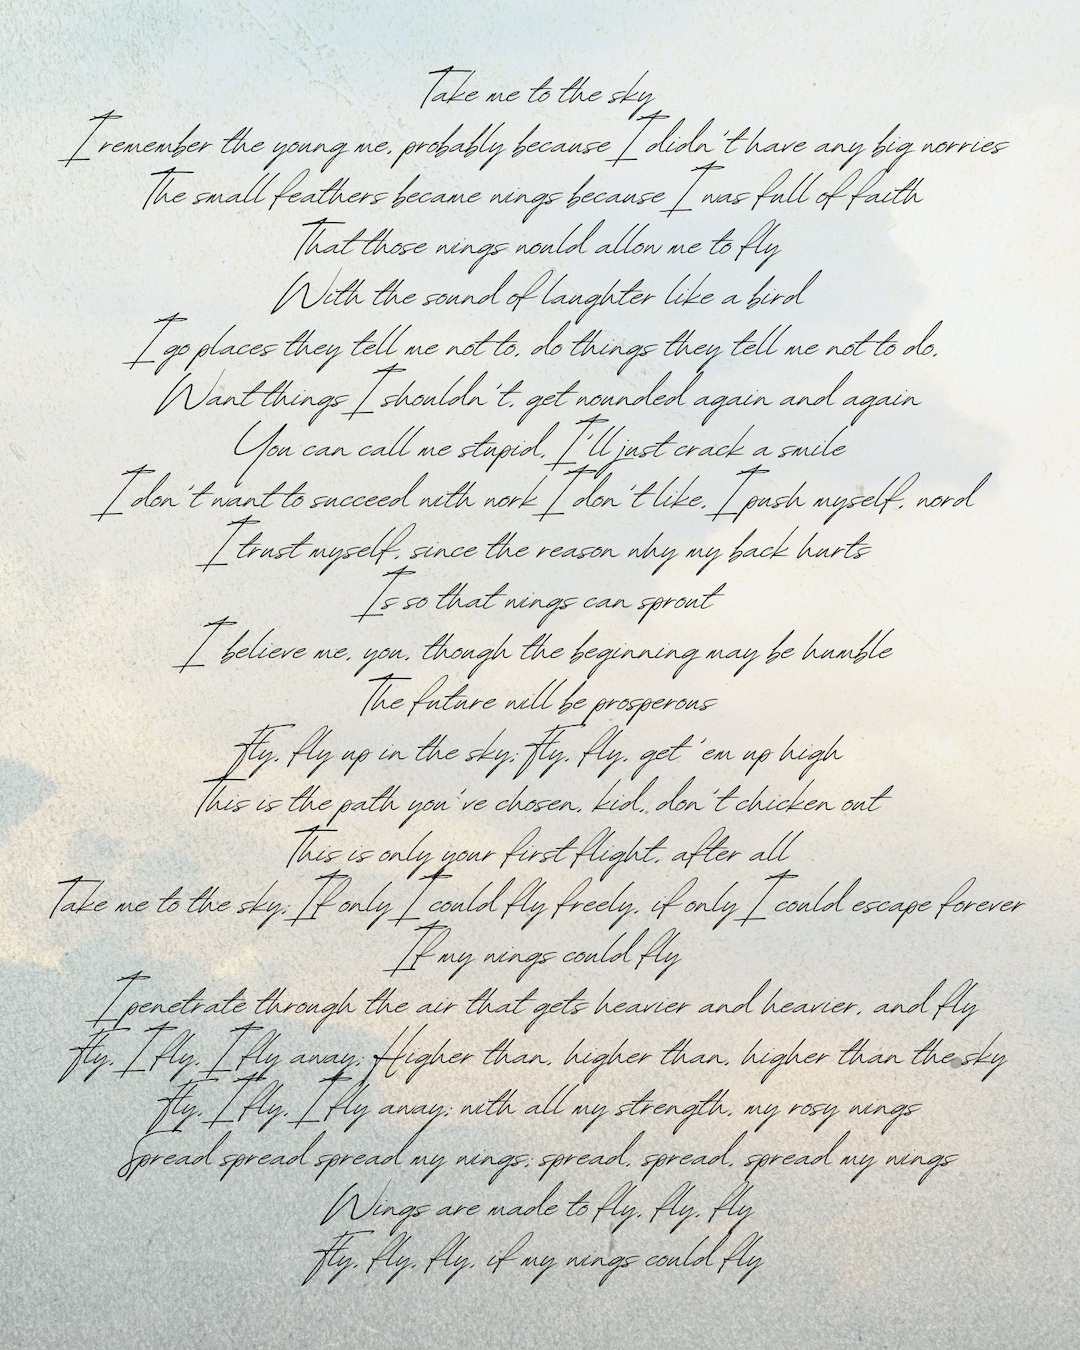 Take me to the sky
I remember the young me, probably because I didn't have any big worries
The small feathers became wings because I was full of faith
That those wings would allow me to fly
With the sound of laughter like a bird
I go places they tell me not to, do things they tell me not to do,
Want things I shouldn't, get wounded again and again
You can call me stupid, I'll just crack a smile
I don't want to succeed with work I don't like, I push myself, word
I trust myself, since the reason why my back hurts
Is so that wings can sprout
I believe me, you, though the beginning may be humble
The future will be prosperous
Fly, fly up in the sky; Fly, fly, get 'em up high
This is the path you've chosen, kid,, don't chicken out
This is only your first flight, after all
Take me to the sky; If only I could fly freely, if only I could escape forever
If my wings could fly
I penetrate through the air that gets heavier and heavier, and fly
Fly, I fly, I fly away; Higher than, higher than, higher than the sky
Fly, I fly, I fly away; with all my strength, my rosy wings
Spread spread spread my wings; spread, spread, spread my wings
Wings are made to fly, fly, fly
Fly, fly, fly, if my wings could fly